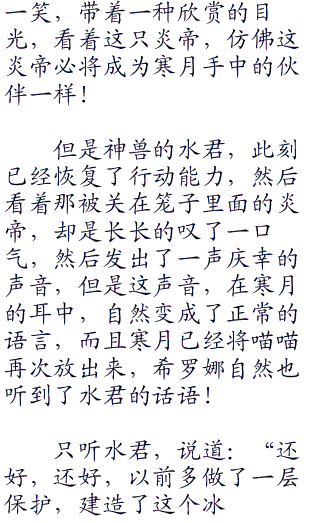 一笑，带着一种欣赏的目
光，看着这只炎帝，仿佛这
炎帝必将成为寒月手中的伙
伴一样！
但是神兽的水君，此刻
已经恢复了行动能力，然后
看着那被关在笼子里面的炎
帝，却是长长的叹了一口
气，然后发出了一声庆幸的
声音，但是这声音，在寒月
的耳中，自然变成了正常的
语言，而且寒月已经将喵喵
再次放出来，希罗娜自然也
听到了水君的话语！
只听水君，说道：“还
好，还好，以前多做了一层
保护，建造了这个冰